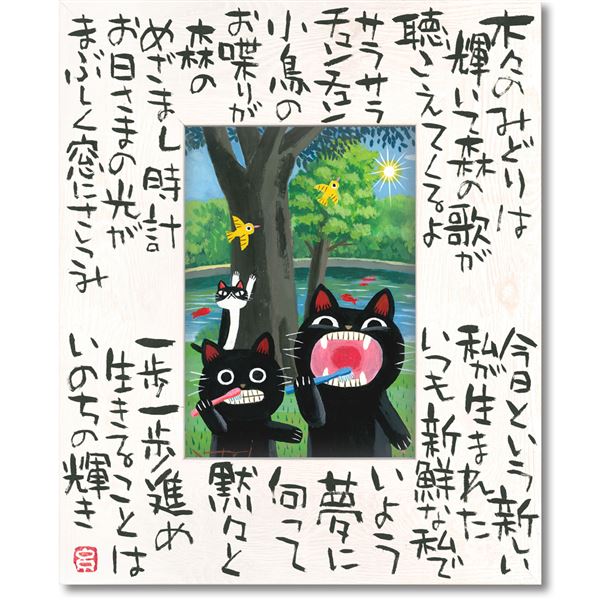 木々のみどりは
輝いて森の歌が
聴こえてくるよ
サラサラ
チュンチュン
小鳥の
お喋りが
森の
めざまし時計
お日さまの光が
まぶしく窓にさしこみ
今日という新しい
私が生まれた
いつも新鮮な私で
いよう
夢に
向って
黙々と
一歩一歩進め
生きることは
いのちの輝き